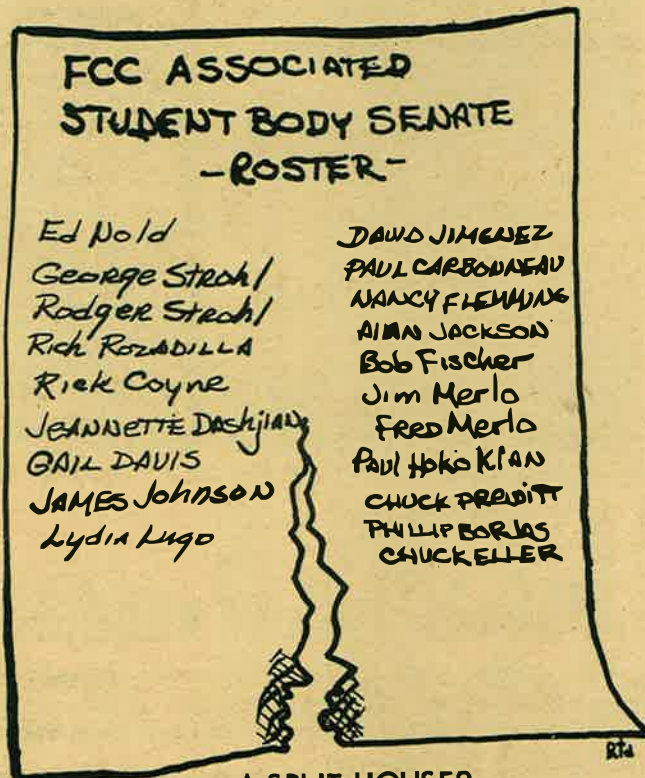 FCC ASSOCIATED
STUDENT BODY SENATE
-ROSTER-
Ed Nold
George Strohl
Rodger Strohl
Rich ROZADILLA
Rick Coyne
JEANNETTE DAShjian
GAIL DAVIS
JAMES JohnsoN
Lydia Lugo
DAVID JIMENEZ
PAUL CARBONNEAU
NANCY FLEMMING
AlAN JACKSON
Bob Fischer
Jim Merlo
FRED Merlo
PAUl HoKoKIAN
CHUCK PREWITT
PHILLIP BORJAS
CHUCK ELLER
A SPLIT HOUSE?